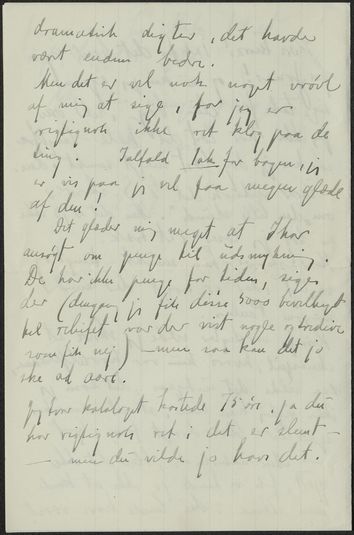 dramatisk digter, det havde
været endnu bedre.
Men det er vel nok noget vrøvl
af mig at sige, for jeg er
rigtignok ikke ret klog paa de
ting. Ialfald Tak for bogen, jeg
er vis paa jeg vil faa megen glæde
af den!
Det glæder mig meget at I har
ansøgt om penge til udsmykning.
De har ikke penge for tiden, siges
der (dengang jeg fik disse 5000 bevilliget
til relieffet var der vist nogle og tredive
som fik nej) — men saa kan det jo
ske ad aare.
Jeg tror kataloget kostede 75 øre. Ja du
har rigtignok ret i det er slemt —
— men du vilde jo have det.